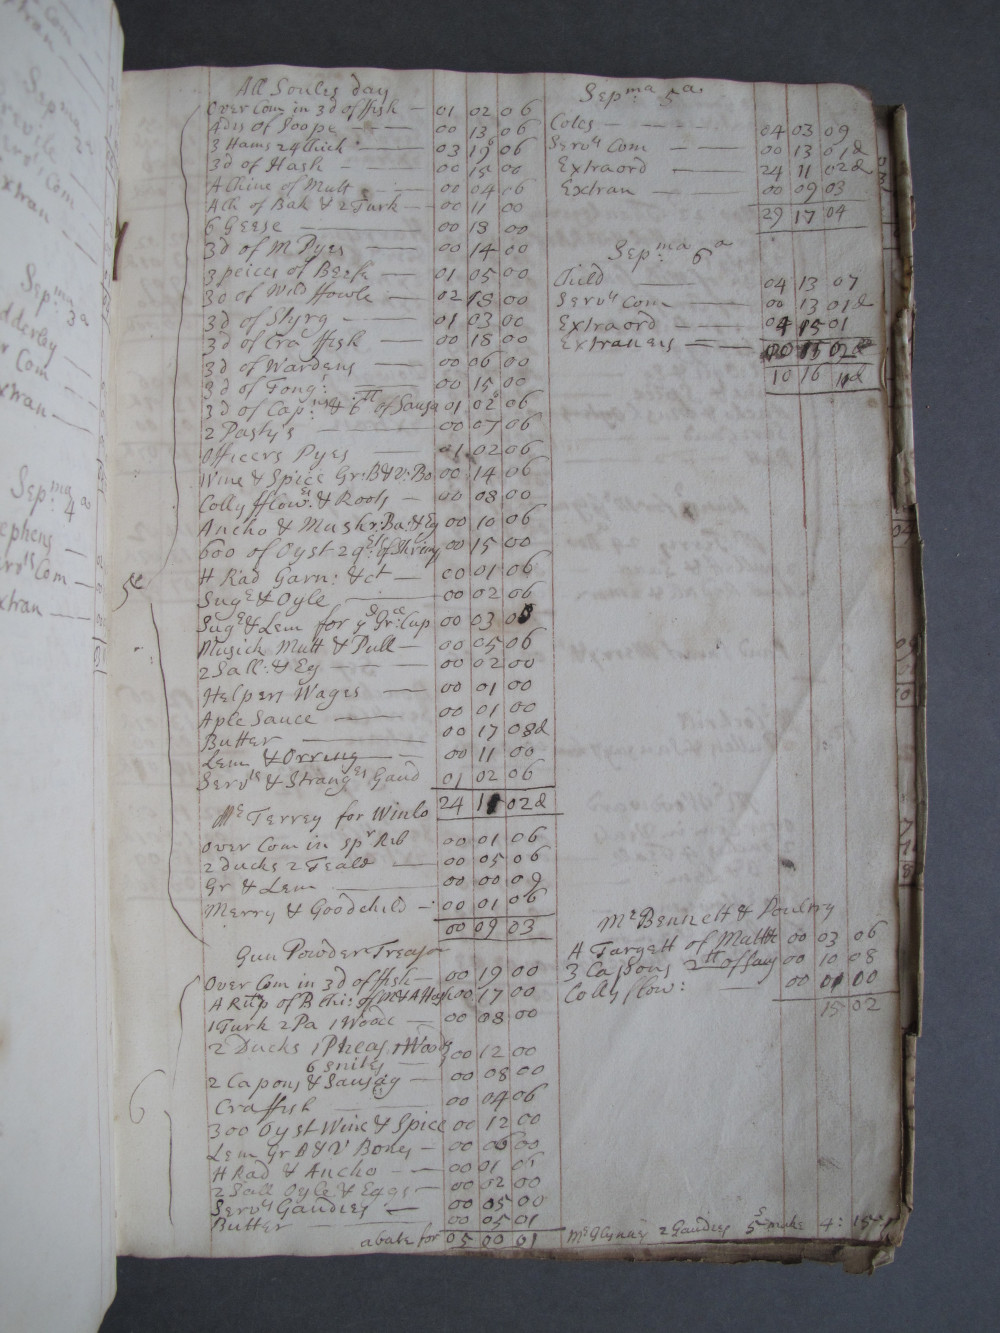 xtran
Sepma 2a
Greville
Servts Com
Extran
Sepma 3a
dderley
r Com
xtran
Sepma 4a
ephens
ervts Com
xtran
All Soules day
Over Com in 3d of ffish — 01 02 06
4 dis of Soope — 00 13 06
3 Hams 24 Chick — 03 19 06
3d of Hash — 00 15 00
A Chine of Mutt — 00 04 06
of Bak & 2 Turk — 00 11 00
6 Geese — 00 18 00
3d of M Pyes — 00 14 00
3 peices of Beefe — 01 05 00
3d of Wild ffowle — 02 18 00
3d of Skyrg — 01 03 00
3d of Cra ffish — 00 18 00
3d of Wardens — 00 06 00
3d of Tongs — 00 15 00
3d of Capns & 6tt of Sausa 01 02 06
2 Pastys — 00 07 06
Officers Pyes — 01 02 06
Wine & Spice Gr: B & V: Bo 00 14 06
Colly fflowrs & Roots — 00 08 00
Ancho & Mushr: Ba: & Eg 00 10 06
600 of Oyst 2 qts of Shrimp 00 15 00
H Rad Garn: &ct — 00 01 06
Sugr & Oyle — 00 02 06
Sugr & Lem for ye Grce Cup 00 03 0
Musick Mutt & Pull — 00 05 06
2 Sall: & Eg — 00 02 00
Helpers Wages — 00 01 00
Aple Sauce — 00 01 00
Butter — 00 17 08d
Lem & Orring — 00 11 00
Servts & Strangrs Gaud 01 02 06
24 11 02d
5
Mr Terrey for Winlo
Over Com in spr Rib 00 01 06
2 Ducks 2 Teale — 00 05 06
Gr & Lem — 00 00 09
Merry & Goodchild — 00 01 06
00 09 03
Gun Powder Treason
Over Com in 3d of ffish — 00 19 00
A Rump of B of M & A Hash 00 17 00
1 Turk 2 Pa 1 Woodc — 00 08 00
2 Ducks 1 Pheas 1 Woodc
6 Snites — 00 12 00
2 Capons & Sausag — 00 08 00
Craffish — 00 04 06
300 Oyst Wine & Spice 00 12 00
Lem Gr B & V Bones — 00 06 00
H Rad & Ancho — 00 01 06
2 Sall Oyle & Eggs — 00 02 00
Servts Gaudies — 00 05 00
Butter — 00 05 01
abate for 05 00 01
6
Sepma 5a
Coles — 04 03 09
Servts Com — 00 13 01d
Extraord — 24 11 02d
Extran — 00 09 03
29 17 04
Sepma 6a
Tield — 04 13 07
Servts Com — 00 13 01d
Extraord — 04 15 01
Extraneis — 00 15 02
10 16 11d
Mr Bennett & Poultry
A Targett of Mutt 00 03 06
3 Capons 2tt of Saus 00 10 08
Collyflow: — 00 01 00
15 02
Mr Glynne's 2 Gaudies 5s make 4: 15s